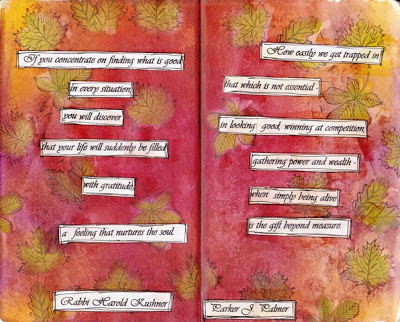 If you concentrate on finding what is good
in every situation,
you will discover
that your life will suddenly be filled
with gratitude,
a feeling that nurtures the soul.
Rabbi Harold Kushner
How easily we get trapped in
that which is not essential -
in looking good, winning at competition,
gathering power and wealth -
when simply being alive
is the gift beyond measure.
Parker J. Palmer